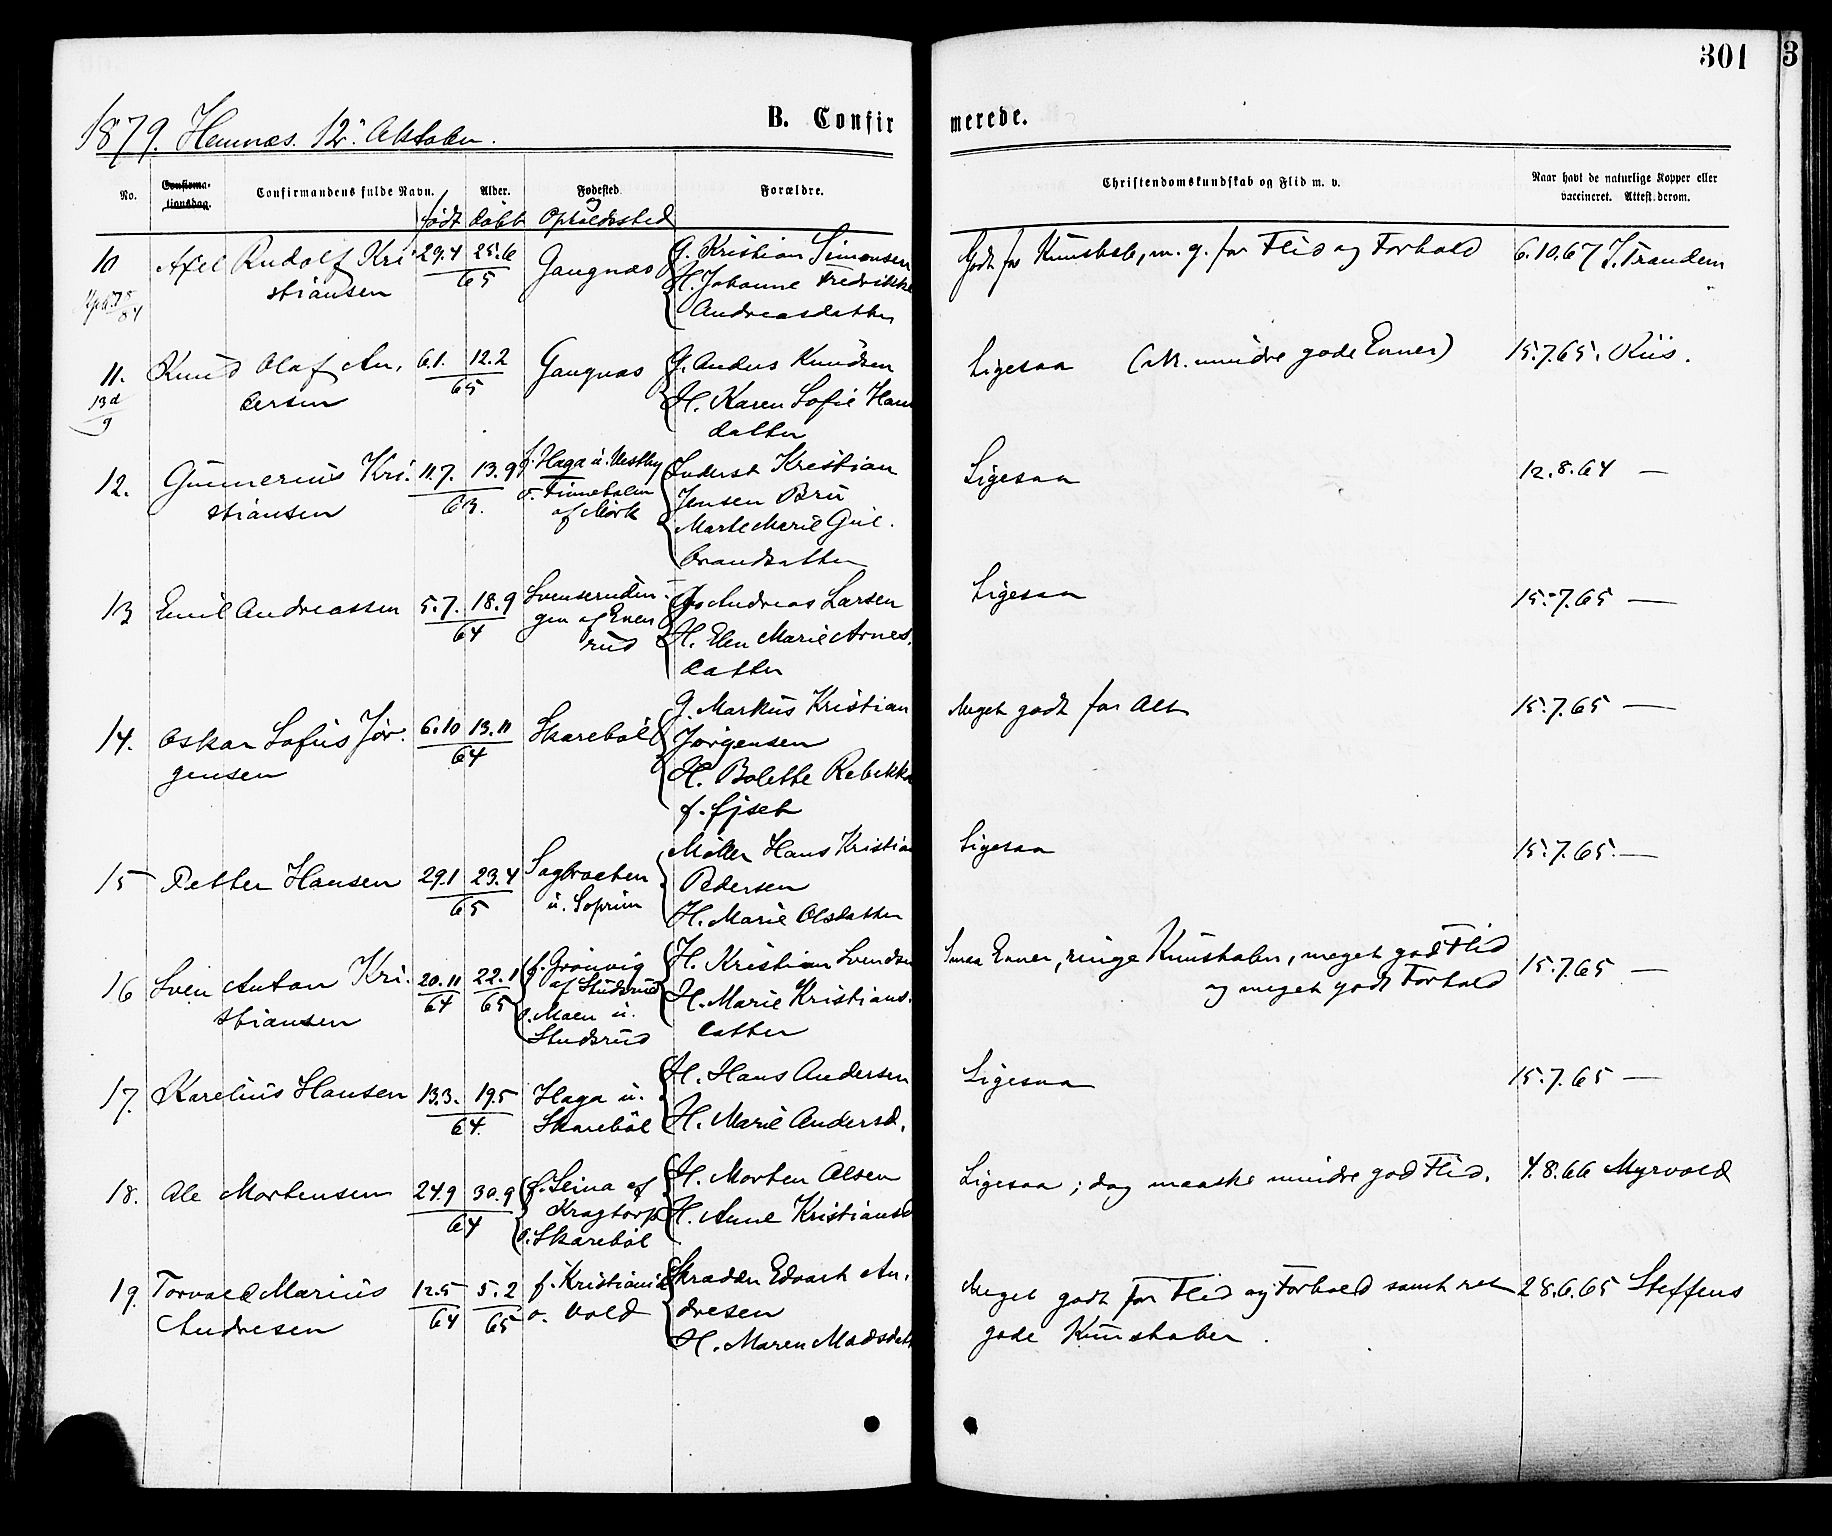 301
3
B. Confir
merede.
1879. Hemnæs. 12te Oktober.
No.
Confirma-
tionsdag.
Confirmandens fulde Navn.
Alder.
Fødested
Forældre.
født
døbt
og
Opholdssted
Christendomskundskab og Flid m. v.
Naar havt de naturlige Kopper eller
vaccineret. Attest. derom.
10 Axel Rudolf Kri 29.4 25.6 Gangnæs G. Kristian Simensen Godt for Kundskab, m. g. for Flid og Forhold 6.10.67 J. Trandem
stiansen 65 H. Johanne Fredrikke
Andreasdatter
11. Knud Olaf An. 6.1. 12.2 Gangnæs G. Anders Knudsen Ligesaa (m. mindre gode Evner) 15.7.65. Riis.
dersen 65 H. Karen Sofie Hans
datter
12. Gunnerius Kri. 11.7. 13.9 f. Haga u. Vestby Inderst Kristian Ligesaa 12.8.64 —
stiansen 63. o. Finnebalen Jensen Bru
af Mörk Marte Marie Gul.
brandsatter
13 Emil Andreassen 5.7. 18.9 Svenserudin- Andreas Larsen Ligesaa 15.7.65 —
64 gen af Enen H. Elen Marie Arnes.
rud datter
14. Oskar Sofus Jör. 6.10 13.11 Skareböl G. Markus Kristian Meget godt for Alt 15.7.65 —
gensen 64 Jørgensen
H. Bolette Rebekka
f. Ejset
15 Petter Hansen 29.1 23.4 Sagbraaten Møller Hans Kristian Ligesaa 15.7.65. —
65 u. Soprim Pedersen
H. Marie Olsdatter
16 Sven Anton Kri. 20.11 22.1 f. Grönvig H. Kristian Svendsen Smaa Evner, ringe Kunskaber, meget god Flid 15.7.65 —
stiansen 64 65 af Studsrud H. Marie Kristians. og meget godt Forhold
o. Moen u. datter
Studsrud
17. Karelius Hansen 13.3. 19.5 Haga u. H. Hans Andersen Ligesaa 15.7.65 —
64. Skareböl H. Marie Andersd.
18. Ole Mortensen 24.9 30.9 f. Leina af H. Morten Olsen Ligesaa; dog maaske mindre god Flid. 4.8.66 Myrvold
64 Kragtorp H. Anne Kristiansd
o. Skareböl
19. Torvald Marius 12.5 5.2 f. Kristiania Skrædder Edvart An. Meget godt for Flid og Forhold samt ret 28.6.65 Steffens
Andresen 64 65 o. Vold dresen gode Kunskaber.
H. Maren Madsdatt